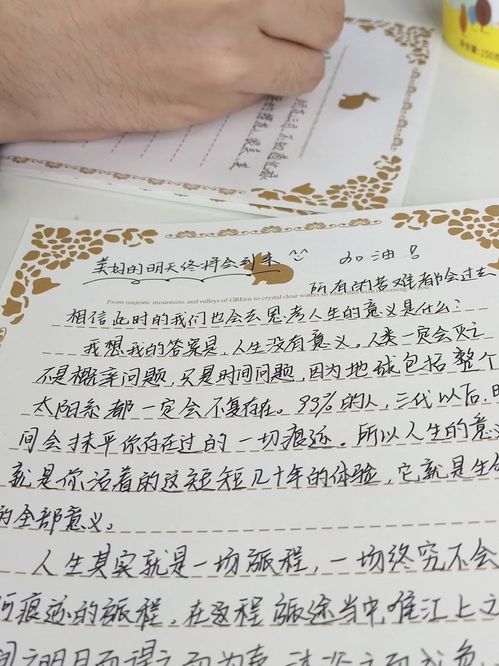 净含量:150克
美好的明天终将会到来 加油！
所有的苦难都会过去
From majestic mountains and valleys of GREen to crystal clear waters so
相信此时的我们也会去思考人生的意义是什么？
我想我的答案是，人生没有意义。人类一定会灭亡
不是概率问题，只是时间问题，因为地球包括整个
太阳系都一定会不复存在。99%的人，三代以后，时
间会抹平你存在过的一切痕迹。所以人生的意义
就是你活着的这短短几十年的体验，它就是生命
的全部意义。
人生其实就是一场旅程，一场终究不会
痕迹的旅程，在这程旅途当中，唯江上之
间之明月，耳得之而为声